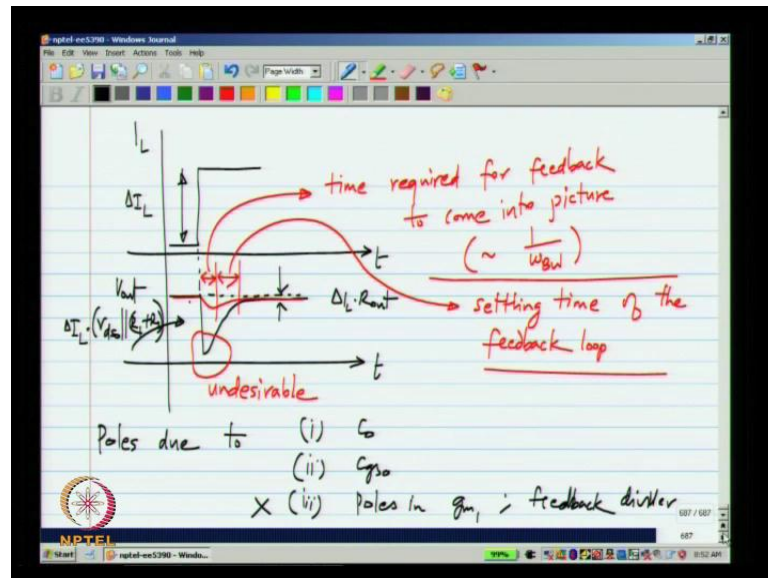 nptel-ee5390 - Windows Journal
File Edit View Insert Actions Tools Help
Page Width
B I
I_L
ΔI_L
t
time required for feedback
to come into picture
(~ 1/ω_BW)
V_out
ΔI_L · R_out
settling time of the
feedback loop
t
undesirable
Poles due to (i) C_o
(ii) C_gso
X (iii) Poles in g_m1 ; feedback divider
687 / 687
687
NPTEL
Start
nptel-ee5390 - Windo...
99%
8:52 AM